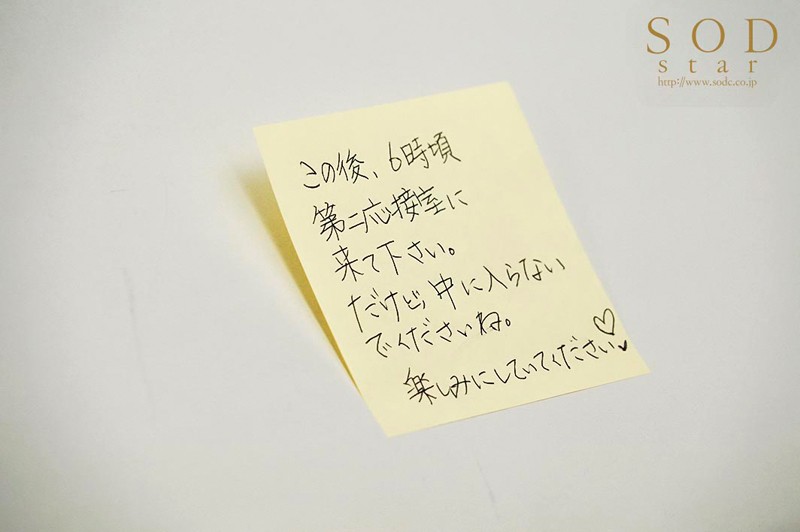 SOD
star
http://www.sodc.co.jp
この後、6時頃
第二応接室に
来て下さい。
だけど、中に入らない
でくださいね。
楽しみにしていてください♡